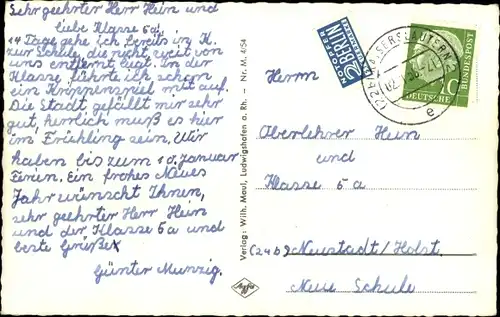 Sehr geehrter Herr Hein und
liebe Klasse 5a!
14 Tage gehe ich bereits in K.
zur Schule, die nicht weit von
uns entfernt liegt. In der
Klasse führte ich schon
ein Krippenspiel mit auf.
Die Stadt gefällt mir sehr
gut, herrlich muß es hier
im Frühling sein. Wir
haben bis zum 10. Januar
Ferien. Ein frohes Neues
Jahr wünscht Ihnen,
sehr geehrter Herr Hein
und der Klasse 5a und
beste Grüße
Günter Munzig.
Verlag: Wilh. Maul, Ludwigshafen a. Rh. - Nr. M. 4/54
Agfa
NOTOPFER
2 BERLIN
STEUERMARKE
KAISERSLAUTERN 2
(22b)
e
10
DEUTSCHE
BUNDESPOST
Herrn
Oberlehrer Hein
und
Klasse 5a
(24b) Neustadt/Holst.
Neue Schule